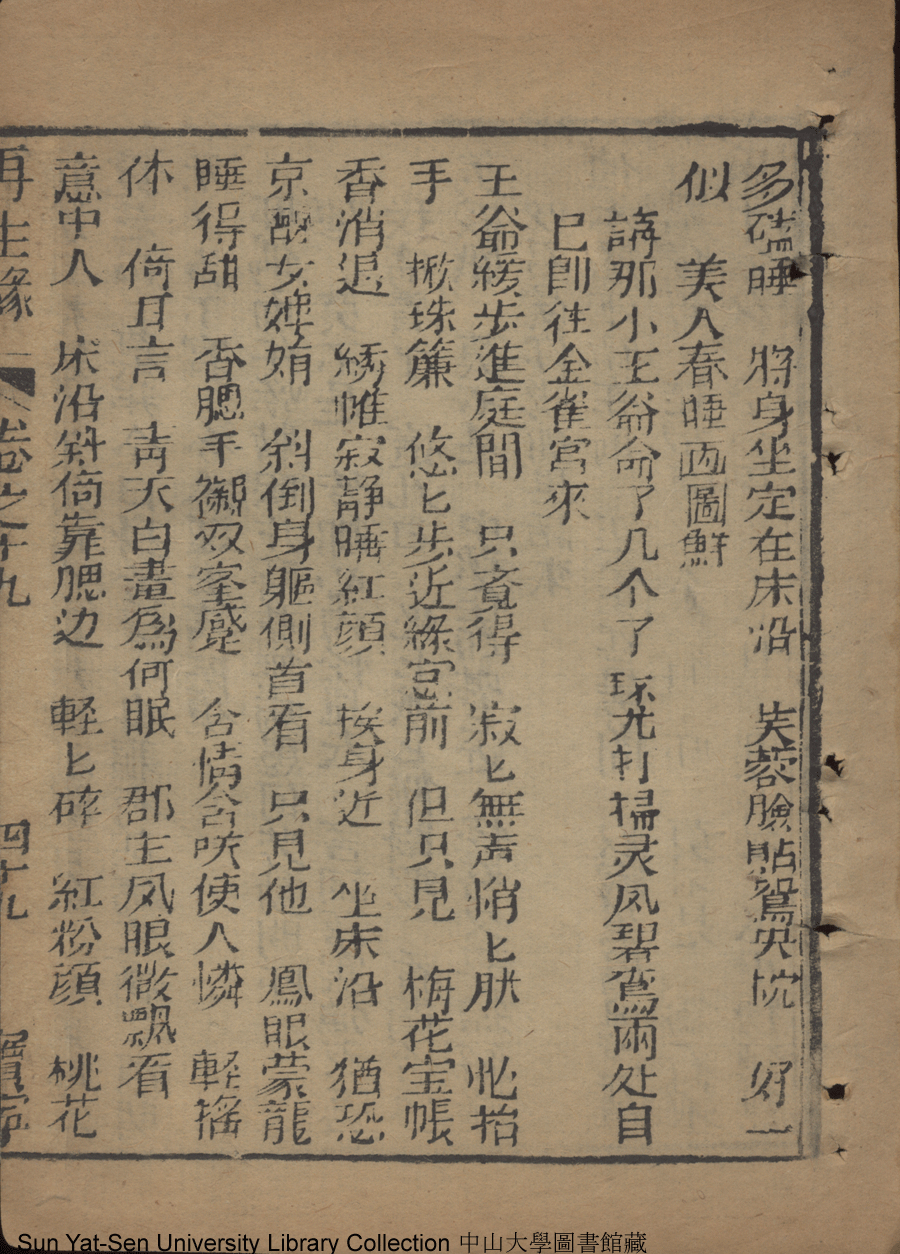 多磕睡　將身坐定在床沿　芙蓉臉貼鴛央枕　好一
似　美人春睡画圖鮮
講那小王爺命了几个了环尤打掃灵凤碧鸞兩处自
已卽往金雀宮來
王爺緩步進庭間　只竟得　寂匕無声悄匕肰　忙抬
手　掀珠簾　悠匕步近綠窓前　但只見　梅花宝帳
香消退　綉帷寂静睡紅顔　挨身近　坐床沿　猶恐
京醒女婵娟　斜倒身軀側首看　只見他　鳳眼蒙龍
睡得甜　香腮手襯双峯蹙　含情含咲使人憐　軽搖
休　倚耳言　靑天白晝爲何眠　郡主凤眼微飄看
意中人　床沿斜倚靠腮边　輕匕碎　紅粉顔　桃花
再生緣　卷之十九　四十九　寶寧
Sun Yat-Sen University Library Collection 中山大學圖書館藏